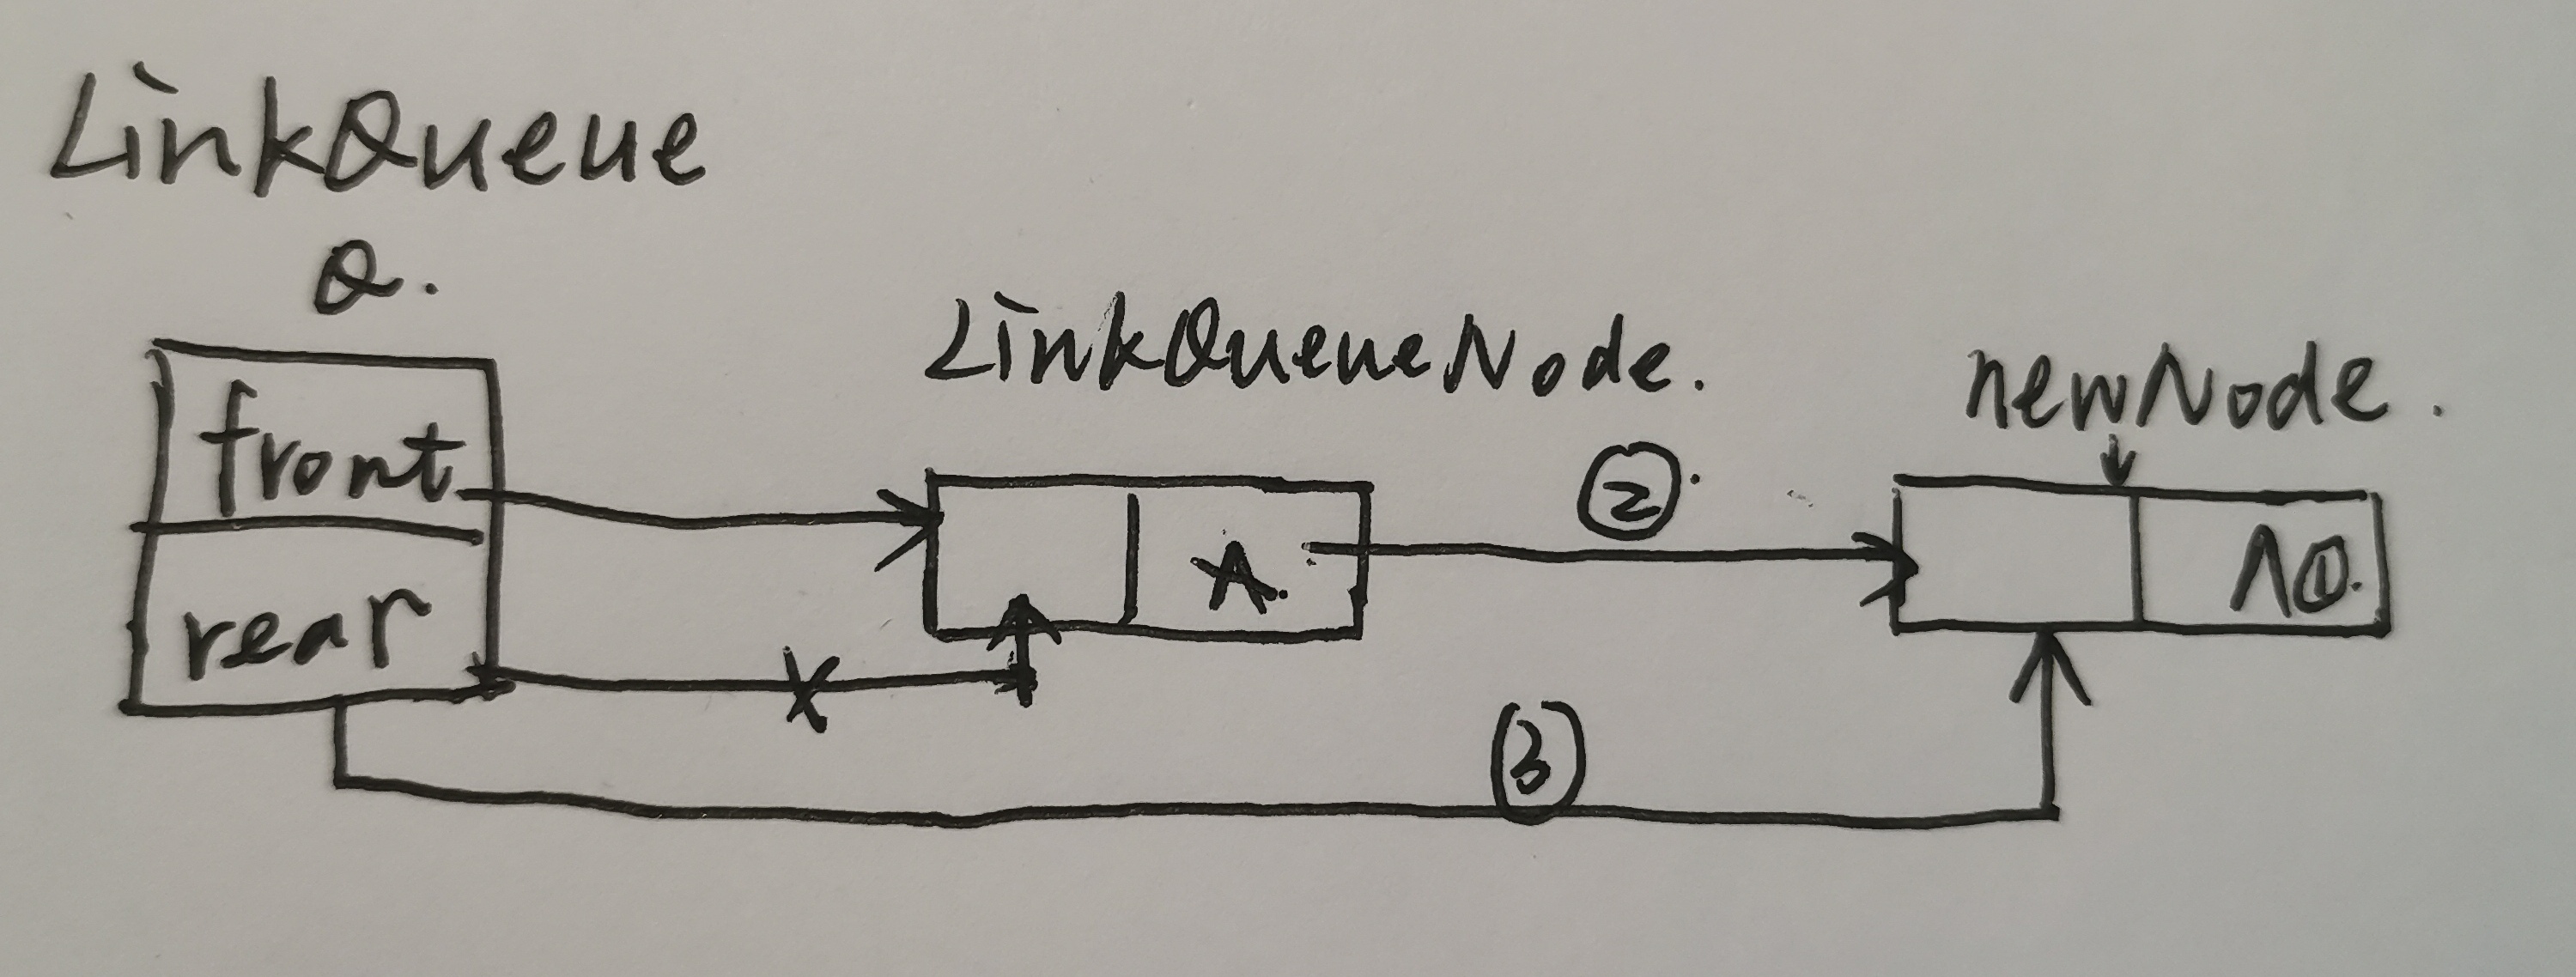 LinkQueue
Q.
front
rear
LinkQueueNode.
②
newNode.
∧①.
X
③